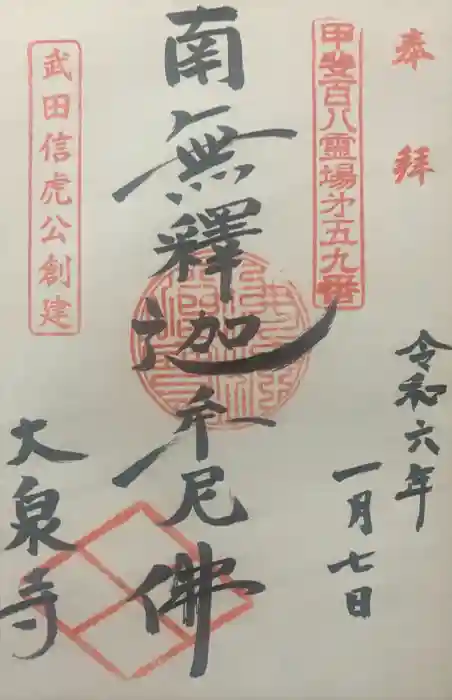 奉拝
甲斐百八霊場第五九番
令和六年
一月七日
南無釋迦牟尼佛
武田信虎公創建
大泉寺